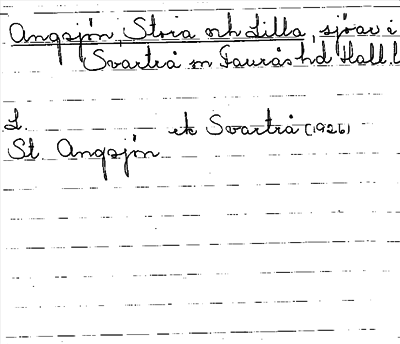 Angsjön, Stora och Lilla, sjöar i
Svartrå sn Faurås hd Hall. l
L.
ek Svartrå (1926)
St. Angsjön